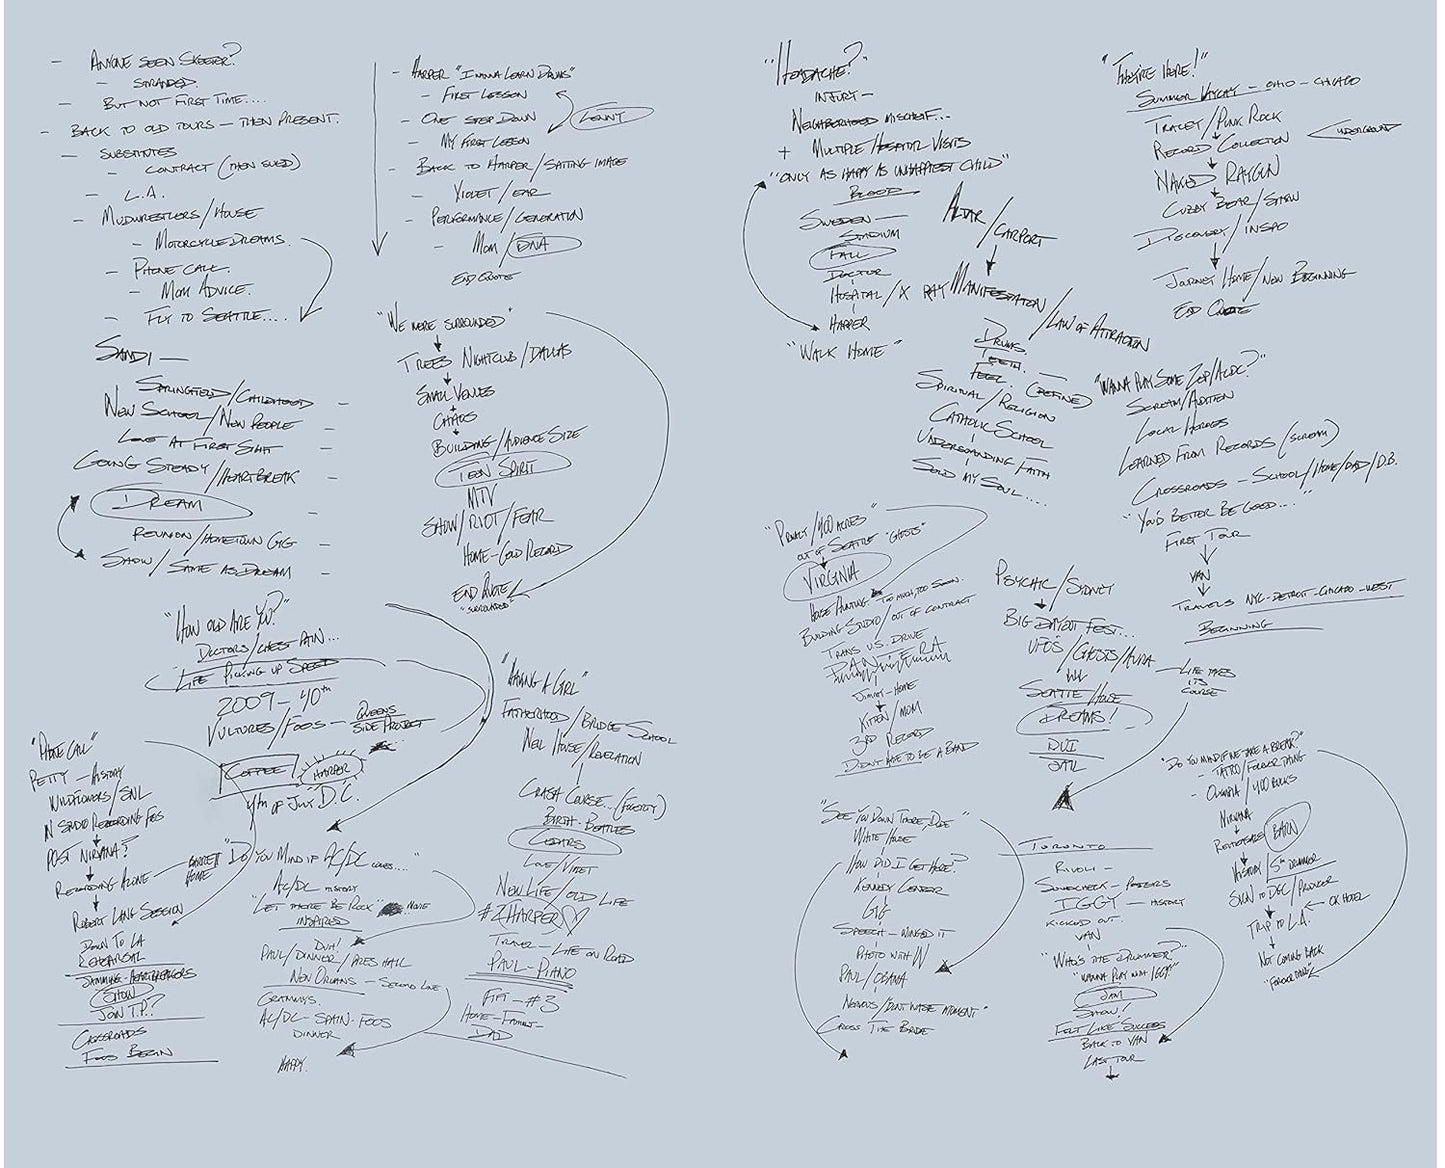 - Anyone seen Skeeter?
- Stranded.
- But not first time....
- Back to old tours - then present.
- Substitutes
- Contract (then sued)
- L.A.
- Mudwrestlers/House
- Motorcycle Dreams.
- Phone call.
- Mom Advice.
- Fly to Seattle....
Sandi -
Springfield/Childhood -
New School/New People -
Love at First Sight -
Going Steady/Heartbreak -
Dream -
Reunion/Hometown Gig -
Show/Same as Dream -
- Harper "I wanna learn drums"
- First Lesson
- One Step Down
Lenny
- My First Lesson
- Back to Harper/Satting image
- Violet/ear
- Performance/Generation
- Mom/DNA
End Quote
"We were surrounded"
Trees Nightclub/Dallas
Small Venues
Chaos
Building/Audience Size
Teen Spirit
MTV
Show/Riot/Fear
Home-Gold Record
End Quote
"Surrounded"
"How old are you?"
Doctors/Chest Pain...
Life Picking up Speed
2009 - 40th
Vultures/Foos - Queens
Side Project
Coffee
Harper
4th of July D.C.
"Phone call"
Petty - History
Wildflowers/SNL
In Studio Recording Foos
Post Nirvana?
Recording Alone - Barrett
Home
Robert Lang Session
Down to LA
Rehearsal
Jamming-Heartbreakers
Show
Join T.P.?
Crossroads
Foos Begin
"Do you mind if AC/DC comes...."
AC/DC History
"Let There Be Rock" Movie
Inspired
Duh!
Paul/Dinner/Pres Hall
New Orleans - Second Line
Grammys.
AC/DC - Spain - Foos
Dinner
Happy.
"Having a Girl"
Fatherhood/Bridge School
Neil House/Revelation
Crash Course...
Birth - Beatles
Love/Violet
New Life/Old Life
#2 Harper
Travel - Life on Road
Paul - Piano
#3
Home - Family -
Dad
"Headache?"
Injury -
Neighborhood mischief...
+ Multiple Hospital Visits
"Only as happy as unhappiest child"
Blood
Sweden -
Stadium
Fall
Doctor
Hospital/X Ray
Harper
"Walk Home"
Altar/Carport
Manifestation/Law of Attraction
Drums.
Teeth. -
Feel. (Refined)
Spiritual/Religion
Catholic School
Understanding Faith
Sold my soul....
"They're Here!"
Summer Vacay - Ohio - Chicago
Tracey/Punk Rock
Record Collection
Underground
Naked Raygun
Cubby Bear/Show
Discovery/Inspo
Journey Home/New Beginning
End Quote
"Wanna play some Zep/AC/DC?"
Scream/Audition
Local Heroes
Learned from Records (Scream)
Crossroads - School/Home/Dad/D.B.
"You'd better be good...."
First Tour
Van
Travels NYC-Detroit-Chicago-West
Beginning
400 acres"
out of Seattle "Ghosts"
Virginia
House Hunting - Too much, too soon.
Building Studio/out of contract
Trans U.S. Drive
PANTERA
Jimmy-Home
Kitten/Mom
3rd Record
Didn't have to be a band
Psychic/Sydney
Big Day Out Fest...
UFO's/Ghosts/Aura
- Life takes
its
course
Seattle/House
Dreams!
DUI
Jail
"See you down there, Dude"
White House
How did I get here?
Kennedy Center
Gig
Speech - winged it
Photo with W
Paul/Obama
Nervous/"Don't waste moment"
Cross the Bridge
Toronto
Rivoli -
Soundcheck - Posters
IGGY - History
Kicked out.
Van
"Who's the drummer?"
"Wanna play with Iggy?"
Jam
Show!
Felt Like "Success"
Back to Van
Last Tour
"Do you mind if we take a break?"
- Tattoo/Forever Thing
- Olympia/400 Bucks
Nirvana
Rehearsals
Barn
History/5th Drummer
Sign to DGC/Producer
Trip to L.A.
OK Hotel
Not Coming Back